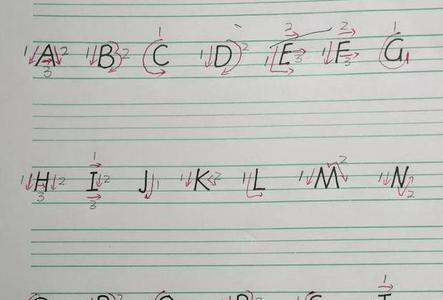 A B C D E F G
H I J K L M N